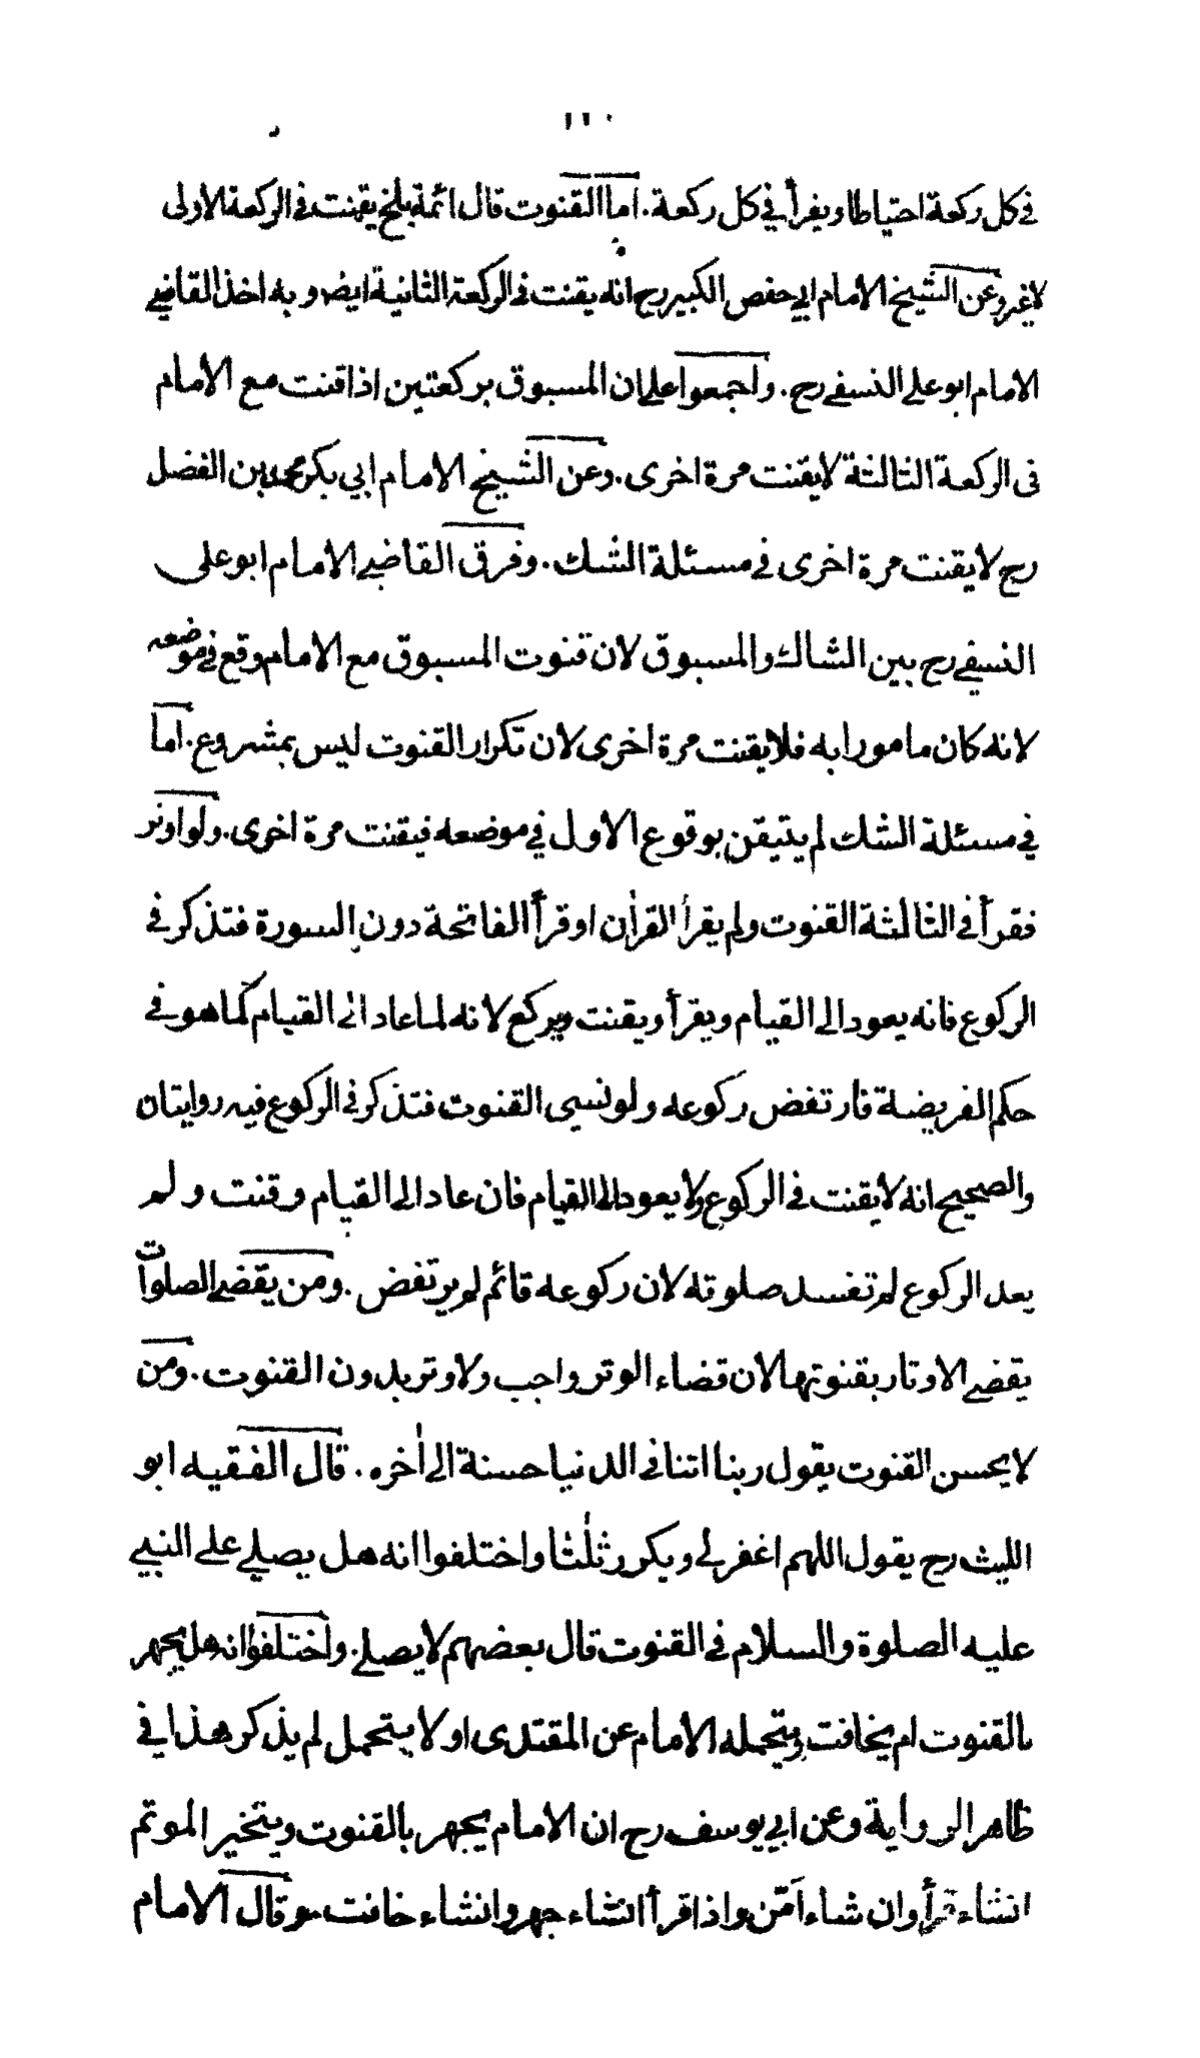 ١١٠
في كل ركعة احتياطا ويقرأ في كل ركعة. اما القنوت قال ائمة بلخ يقنت في الركعة الاولى
لا غير وعن الشيخ الامام ابي حفص الكبير رح انه يقنت في الركعة الثانية ايضا وبه اخذ القاضي
الامام ابو علي النسفي رح. واجمعوا علي ان المسبوق بركعتين اذا قنت مع الامام
في الركعة الثالثة لا يقنت مرة اخرى. وعن الشيخ الامام ابي بكر محمد بن الفضل
رح لا يقنت مرة اخرى في مسئلة الشك. وفرق القاضي الامام ابو علي
النسفي رح بين الشاك والمسبوق لان قنوت المسبوق مع الامام وقع في موضعه
لانه كان مامورا به فلا يقنت مرة اخرى لان تكرار القنوت ليس بمشروع. اما
في مسئلة الشك لم يتيقن بوقوع الاول في موضعه فيقنت مرة اخرى. ولو اوتر
فقرأ في الثالثة القنوت ولم يقرأ القرأن او قرأ الفاتحة دون السورة فتذكر في
الركوع فانه يعود الى القيام ويقرأ ويقنت ويركع لانه لما عاد الى القيام كما هو في
حكم الفريضة فارتفض ركوعه ولو نسي القنوت فتذكر في الركوع فيه روايتان
والصحيح انه لا يقنت في الركوع ولا يعود الى القيام فان عاد الى القيام وقنت ولم
يعد الركوع لم تفسد صلوته لان ركوعه قائم لم يرتفض. ومن يقضي الصلوات
يقضي الاوتار بقنوتها لان قضاء الوتر واجب ولا وتر بدون القنوت. ومن
لا يحسن القنوت يقول ربنا اتنا في الدنيا حسنة الى اٰخره. قال الفقيه ابو
الليث رح يقول اللهم اغفر لي ويكرر ثلٰثا واختلفوا انه هل يصلي علي النبي
عليه الصلوة والسلام في القنوت قال بعضهم لا يصلي. واختلفوا انه هل يجهر
بالقنوت ام يخافت ويتحمله الامام عن المقتدى او لا يتحمل لم يذكر هذا في
ظاهر الرواية وعن ابي يوسف رح ان الامام يجهر بالقنوت ويتخير الموتم
انشاء قرأ وان شاء اَمّن واذا قرأ انشاء جهر وانشاء خافت وقال الامام